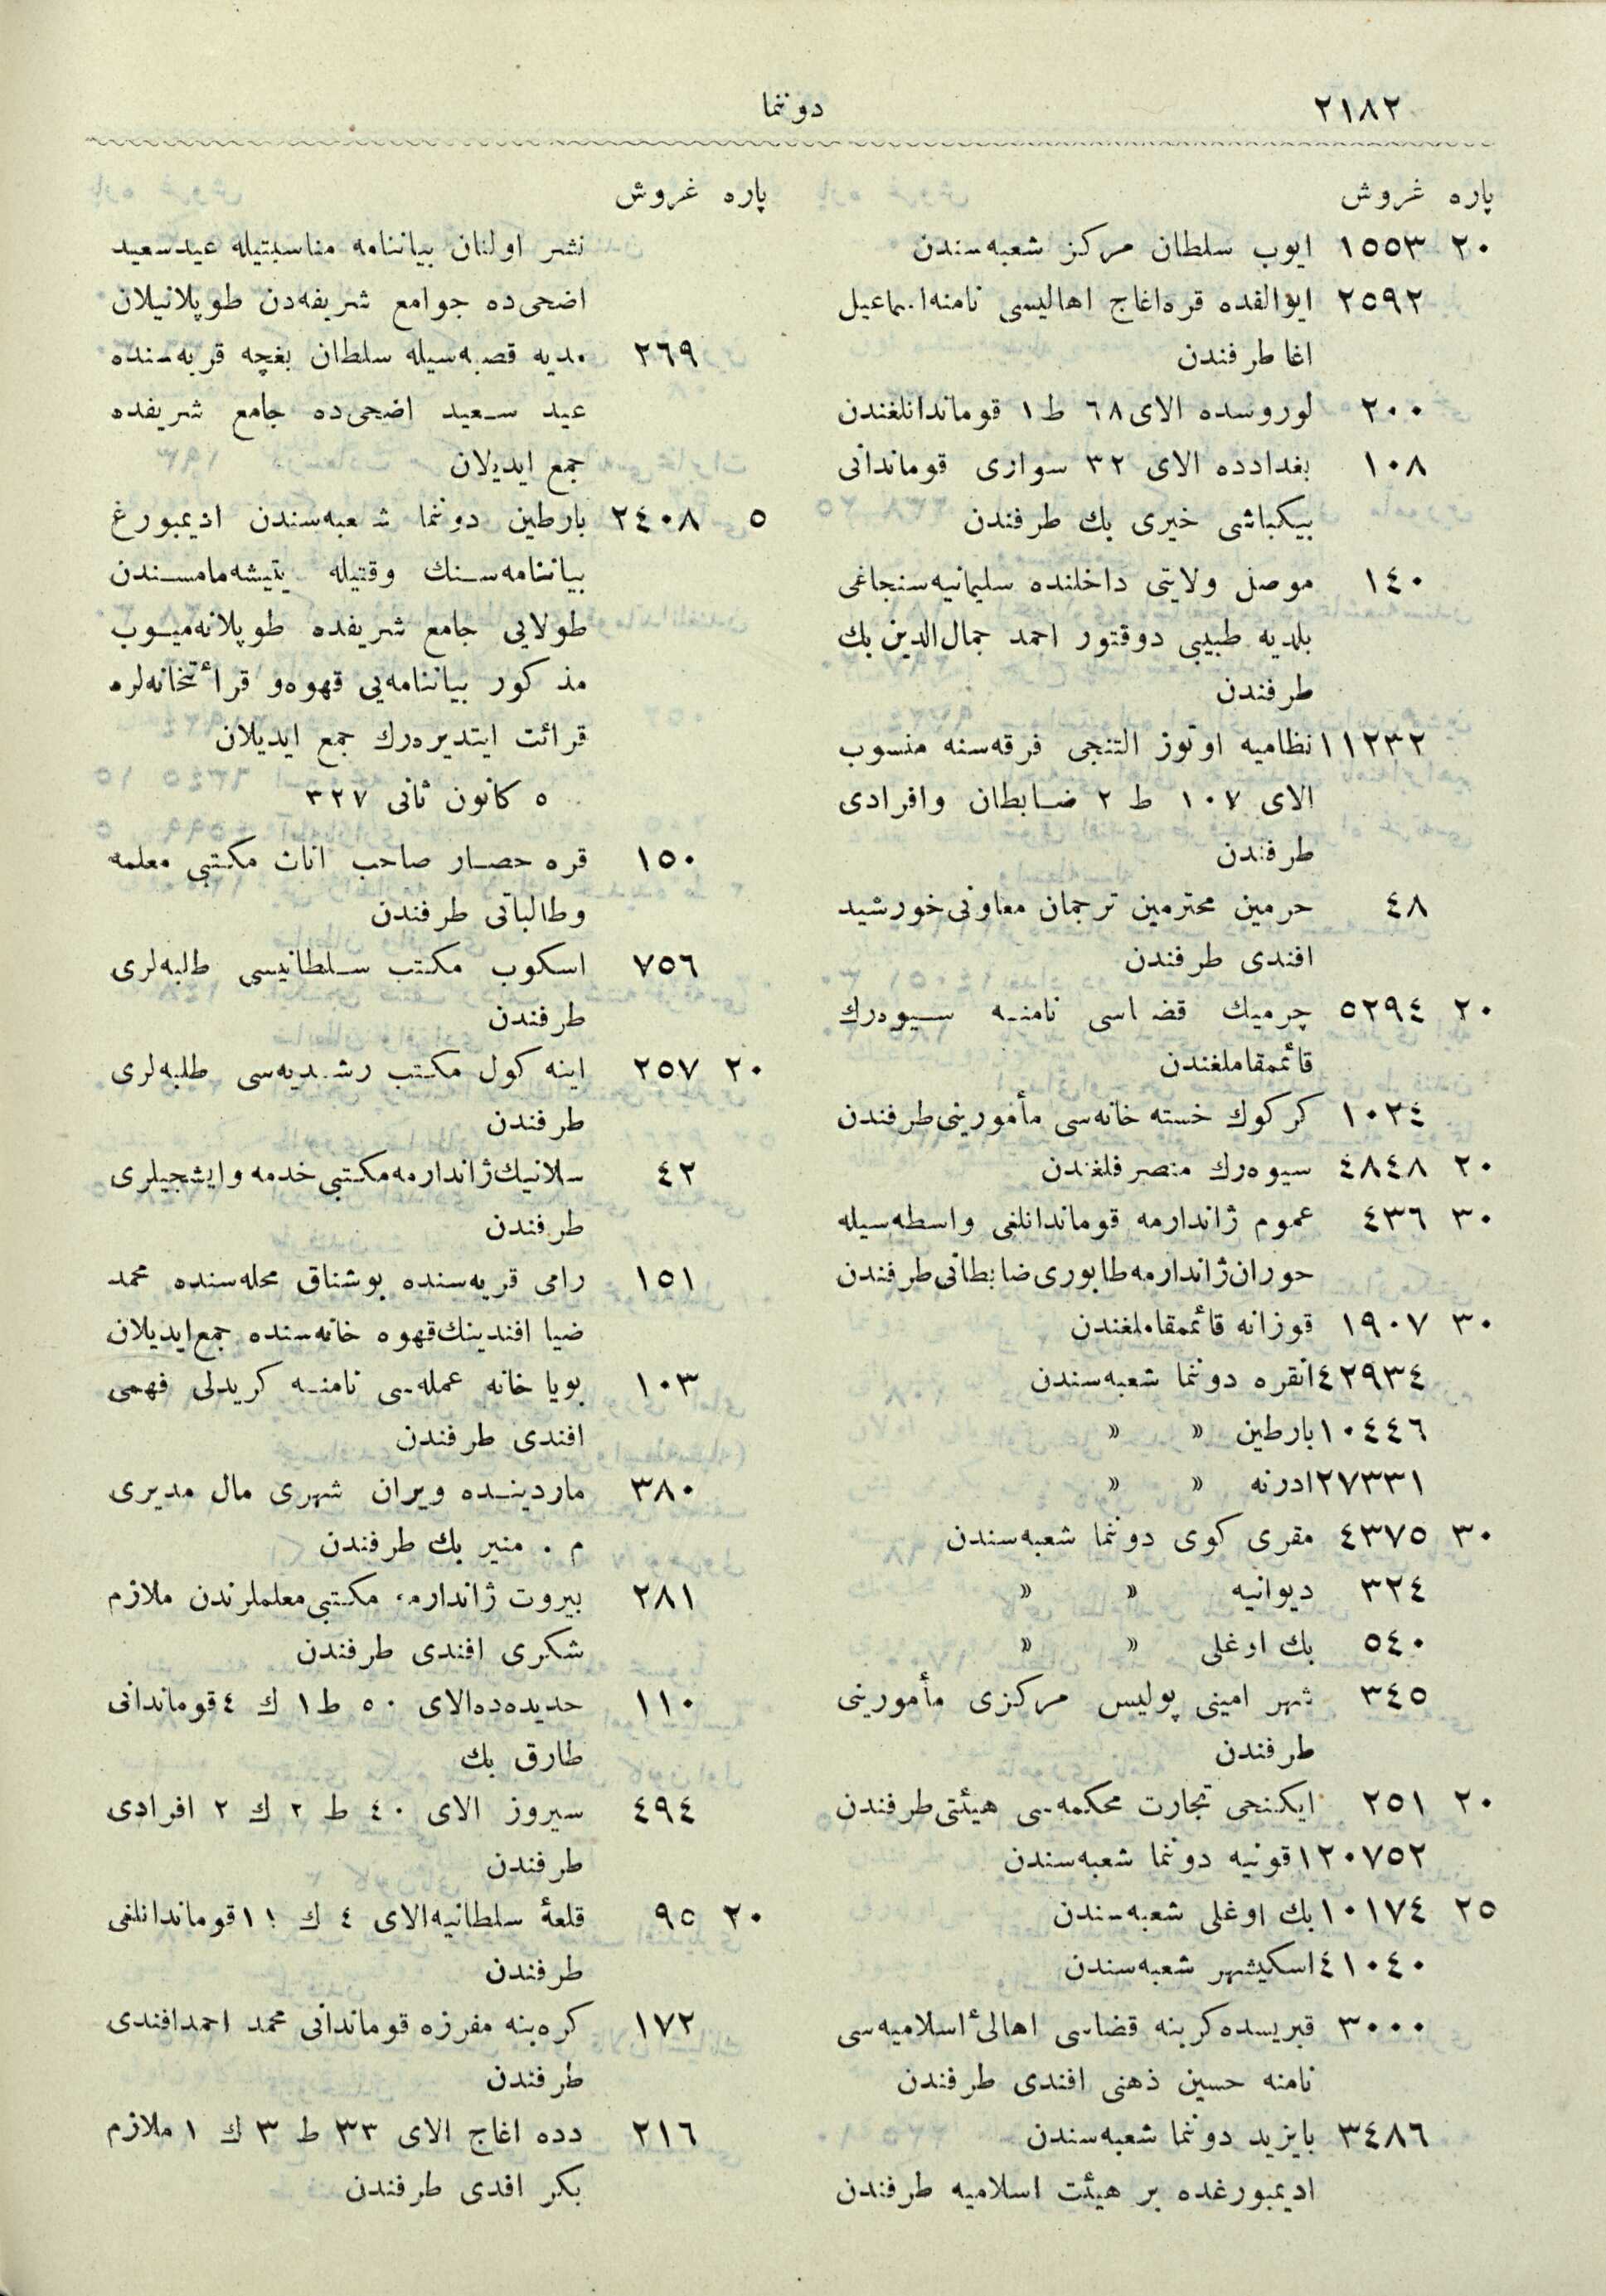 ٢١٨٢
دوننما
پاره غروش
٢٠ ١٥٥٣ ايوب سلطان مركز شعبه‌سندن
٢٥٩٢ ايوالقده قره‌اغاج اهاليسی نامنه اسماعيل
اغا طرفندن
٢٠٠ لوروسده الای ٦٨ ط ١ قوماندانلغندن
١٠٨ بغدادده الای ٣٢ سواری قوماندانی
بيكباشی خيری بك طرفندن
١٤٠ موصل ولايتی داخلنده سليمانيه سنجاغی
بلديه طبيبی دوقتور احمد جمال‌الدين بك
طرفندن
١١٢٣٢ نظاميه اوتوز التنجی فرقه‌سنه منسوب
الای ١٠٧ ط ٢ ضابطان وافرادی
طرفندن
٤٨ حرمين محترمين ترجمان معاونی خورشيد
افندی طرفندن
٢٠ ٥٢٩٤ چرميك قضاسی نامنه سيوه‌رك
قائممقاملغندن
١٠٢٤ كركوك خسته خانه‌سی مأمورينی طرفندن
٢٠ ٤٨٤٨ سيوه‌رك متصرفلغندن
٣٠ ٤٣٦ عموم ژاندارمه قوماندانلغی واسطه‌سيله
حوران ژاندارمه طابوری ضابطانی طرفندن
٣٠ ١٩٠٧ قوزانه قائممقاملغندن
٤٢٩٣٤ انقره دوننما شعبه‌سندن
١٠٤٤٦ بارطين » »
٢٧٣٣١ ادرنه » »
٣٠ ٤٣٧٥ مقری كوی دوننما شعبه‌سندن
٣٢٤ ديوانيه » »
٥٤٠ بك اوغلی » »
٣٤٥ شهر امينی پوليس مركزی مأمورينی
طرفندن
٢٠ ٢٥١ ايكنجی تجارت محكمه‌سی هيئتی طرفندن
١٢٠٧٥٢ قونيه دوننما شعبه‌سندن
٢٥ ١٠١٧٤ بك اوغلی شعبه‌سندن
٤١٠٤٠ اسكيشهر شعبه‌سندن
٣٠٠٠ قبريسده كرينه قضاسی اهالیٔ اسلاميه‌سی
نامنه حسين ذهنی افندی طرفندن
٣٤٨٦ بايزيد دوننما شعبه‌سندن
اديمبورغده بر هيئت اسلاميه طرفندن
پاره غروش
نشر اولنان بياننامه مناسبتيله عيد سعيد
اضحی‌ده جوامع شريفه‌دن طوپلانيلان
٢٦٩ مديه قصبه‌سيله سلطان بغچه قريه‌سنده
عيد سعيد اضحی‌ده جامع شريفده
جمع ايديلان
٥ ٢٤٠٨ بارطين دوننما شعبه‌سندن اديمبورغ
بياننامه‌سنك وقتيله يتيشه‌مامسندن
طولايی جامع شريفده طوپلانه‌ميوب
مذكور بياننامه‌يی قهوه و قرأتخانه‌لره
قرائت ايتديره‌رك جمع ايديلان
٥ كانون ثانی ٣٢٧
١٥٠ قره حصار صاحب اناث مكتبی معلمه
وطالباتی طرفندن
٧٥٦ اسكوب مكتب سلطانيسی طلبه‌لری
طرفندن
٢٠ ٢٥٧ اينه كول مكتب رشديه‌سی طلبه‌لری
طرفندن
٤٢ سلانيك ژاندارمه مكتبی خدمه وايشجيلری
طرفندن
١٥١ رامی قريه‌سنده بوشناق محله‌سنده محمد
ضيا افندينك قهوه خانه‌سنده جمع ايديلان
١٠٣ بويا خانه عمله‌سی نامنه كريدلی فهمی
افندی طرفندن
٣٨٠ ماردينده ويران شهری مال مديری
م . منير بك طرفندن
٢٨١ بيروت ژاندارمه مكتبی معلملرندن ملازم
شكری افندی طرفندن
١١٠ حديده‌ده الای ٥٠ ط ١ ك ٤ قوماندانی
طارق بك
٤٩٤ سيروز الای ٤٠ ط ٢ ك ٢ افرادی
طرفندن
٢٠ ٩٥ قلعهٔ سلطانيه الای ٤ ك ١١ قوماندانلغی
طرفندن
١٧٢ كره‌بنه مفرزه قوماندانی محمد احمد افندی
طرفندن
٢١٦ دده اغاج الای ٣٣ ط ٣ ك ١ ملازم
بكر افدی طرفندن